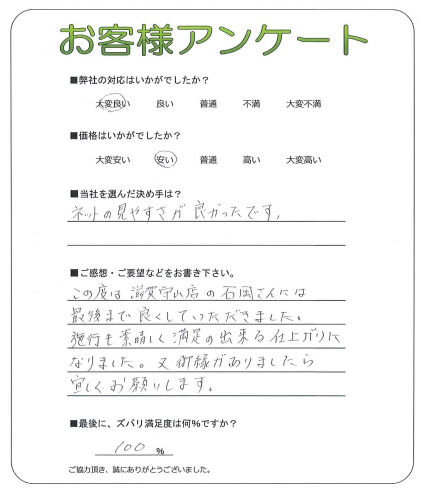 お客様アンケート
■弊社の対応はいかがでしたか?
大変良い 良い 普通 不満 大変不満
■価格はいかがでしたか?
大変安い 安い 普通 高い 大変高い
■当社を選んだ決め手は?
ネットの見やすさが良かったです。
■ご感想・ご要望などをお書き下さい。
この度は滋賀守山店の石岡さんには
最後まで良くしていただきました。
施行も素晴しく満足の出来る仕上がりに
なりました。又御縁がありましたら
宜しくお願いします。
■最後に、ズバリ満足度は何%ですか?
100 %
ご協力頂き、誠にありがとうございました。